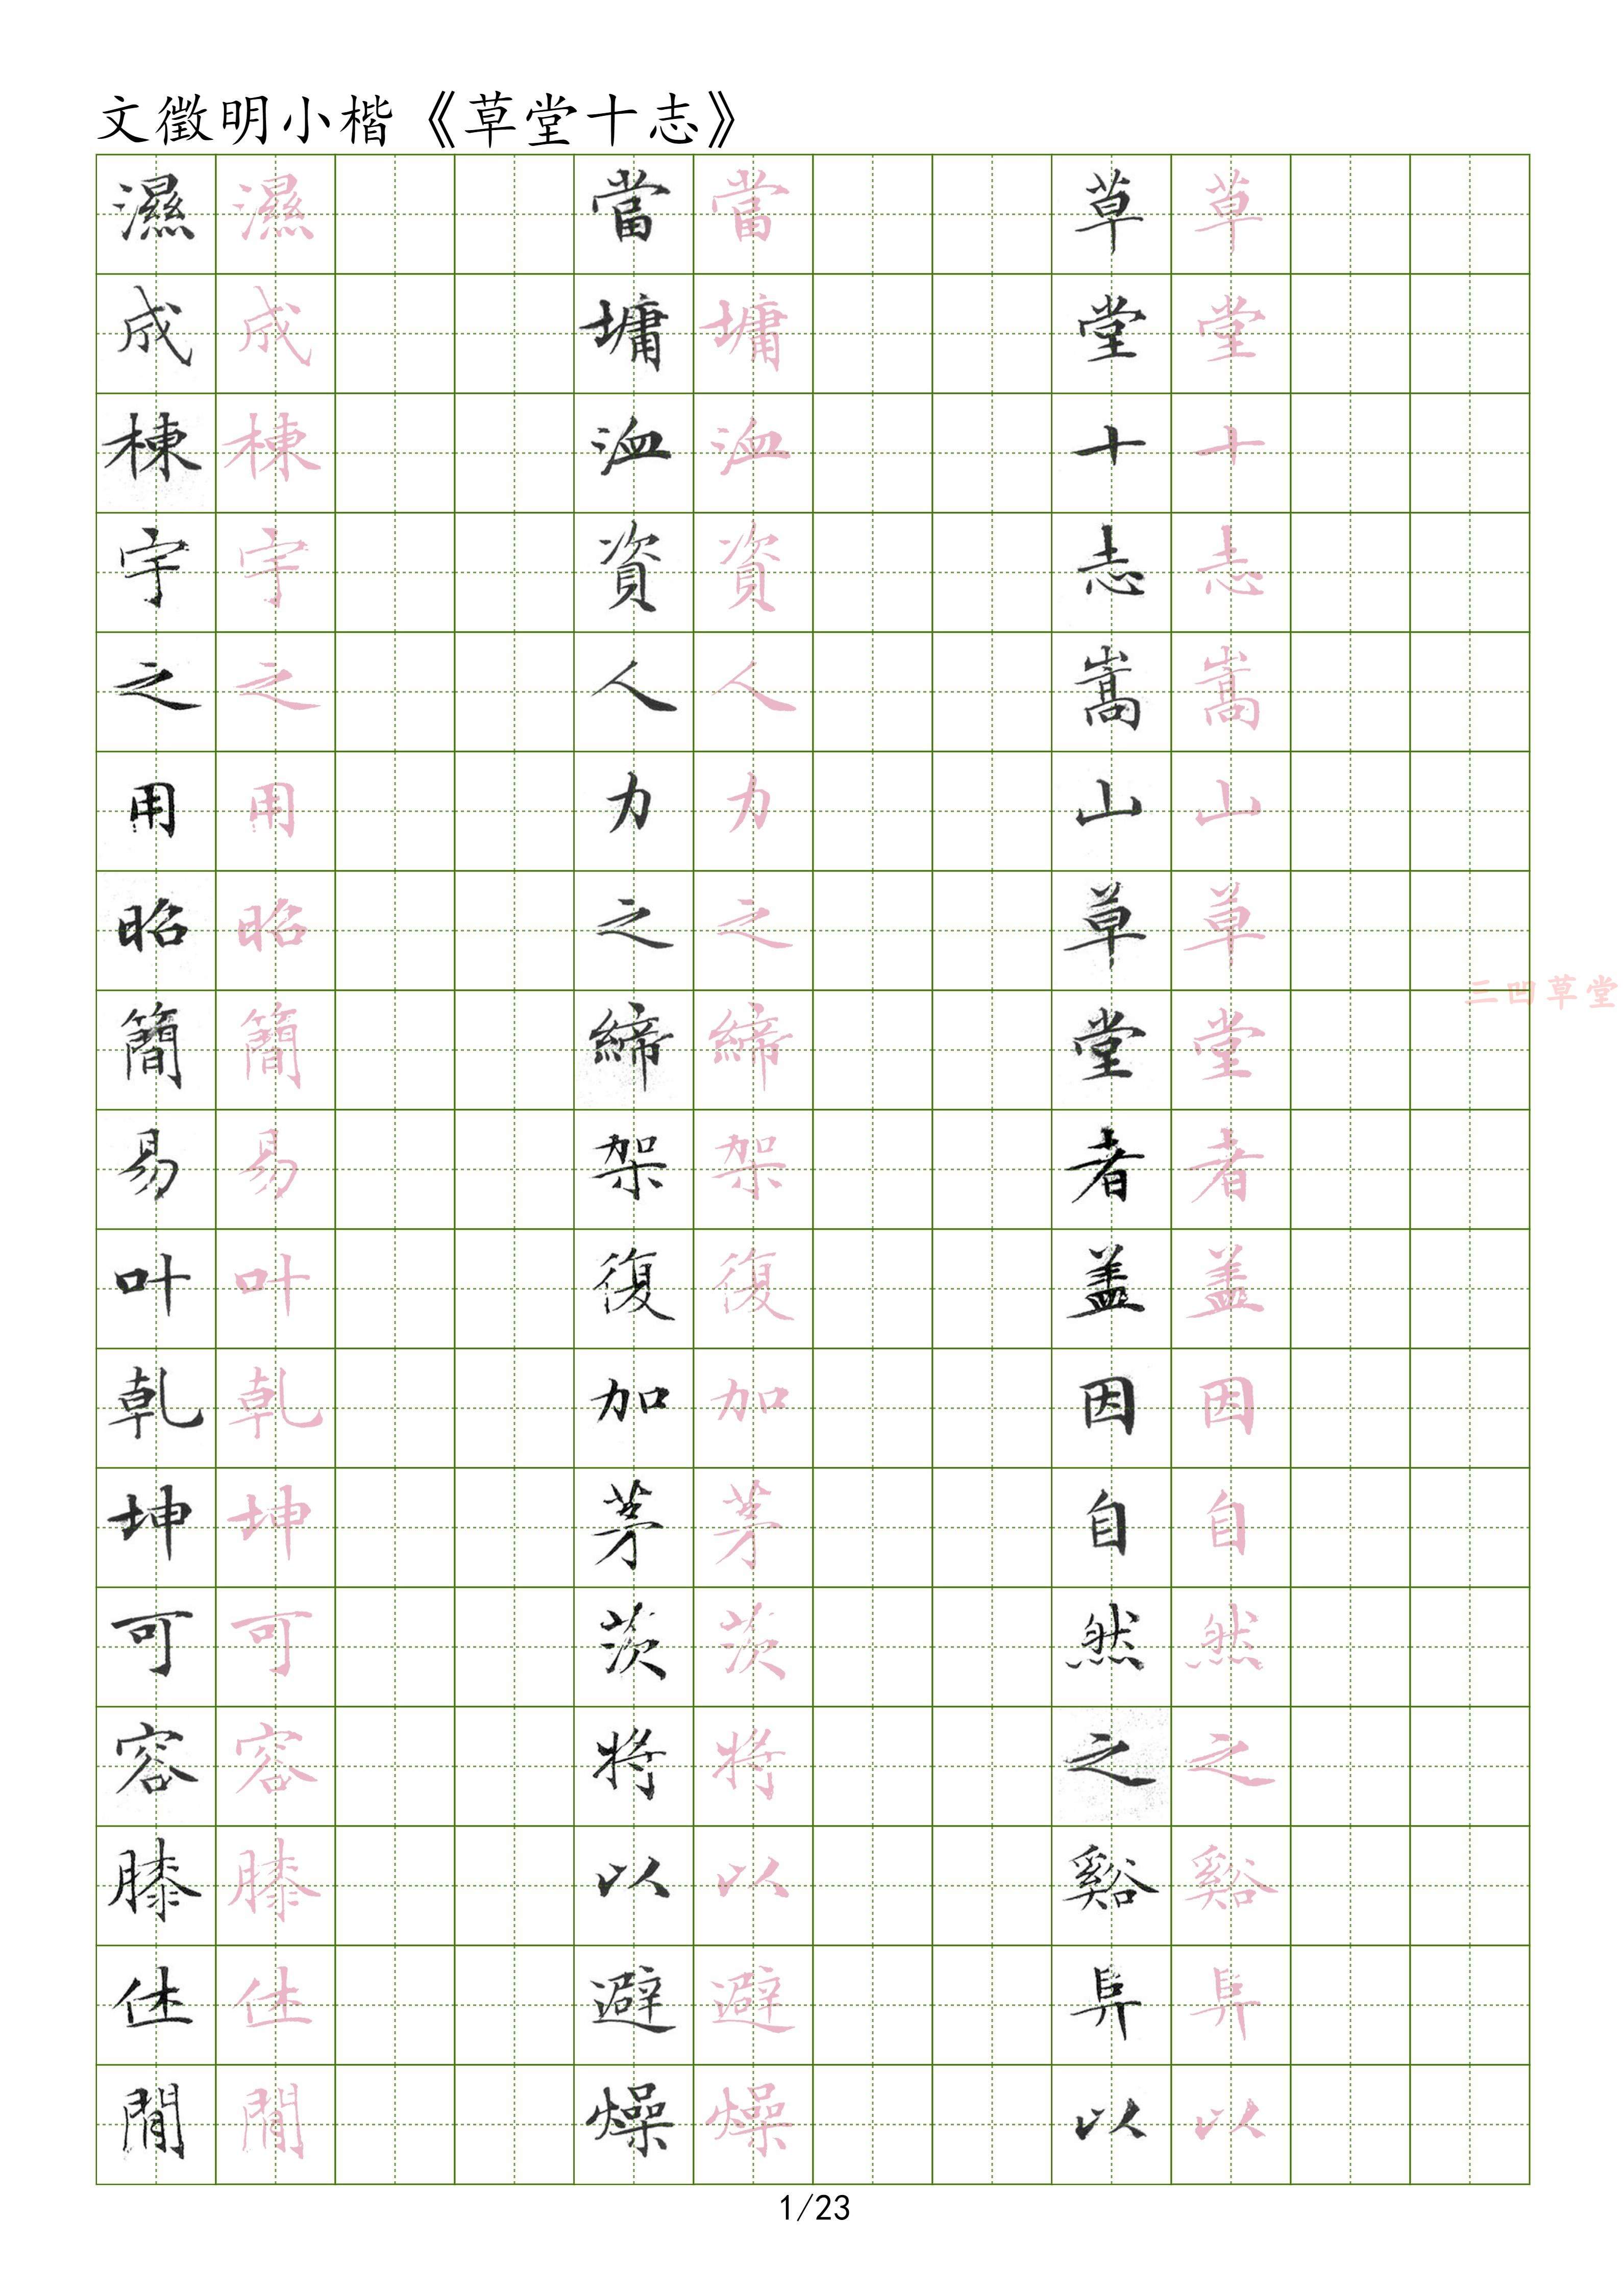 文徵明小楷《草堂十志》
草堂十志嵩山草堂者盖因自然之谿阜以
草堂十志嵩山草堂者盖因自然之谿阜以
當墉洫資人力之締架復加茅茨将以避燥
當墉洫資人力之締架復加茅茨将以避燥
濕成棟宇之用昭簡易叶乾坤可容膝休閒
濕成棟宇之用昭簡易叶乾坤可容膝休閒
三凹草堂
1/23